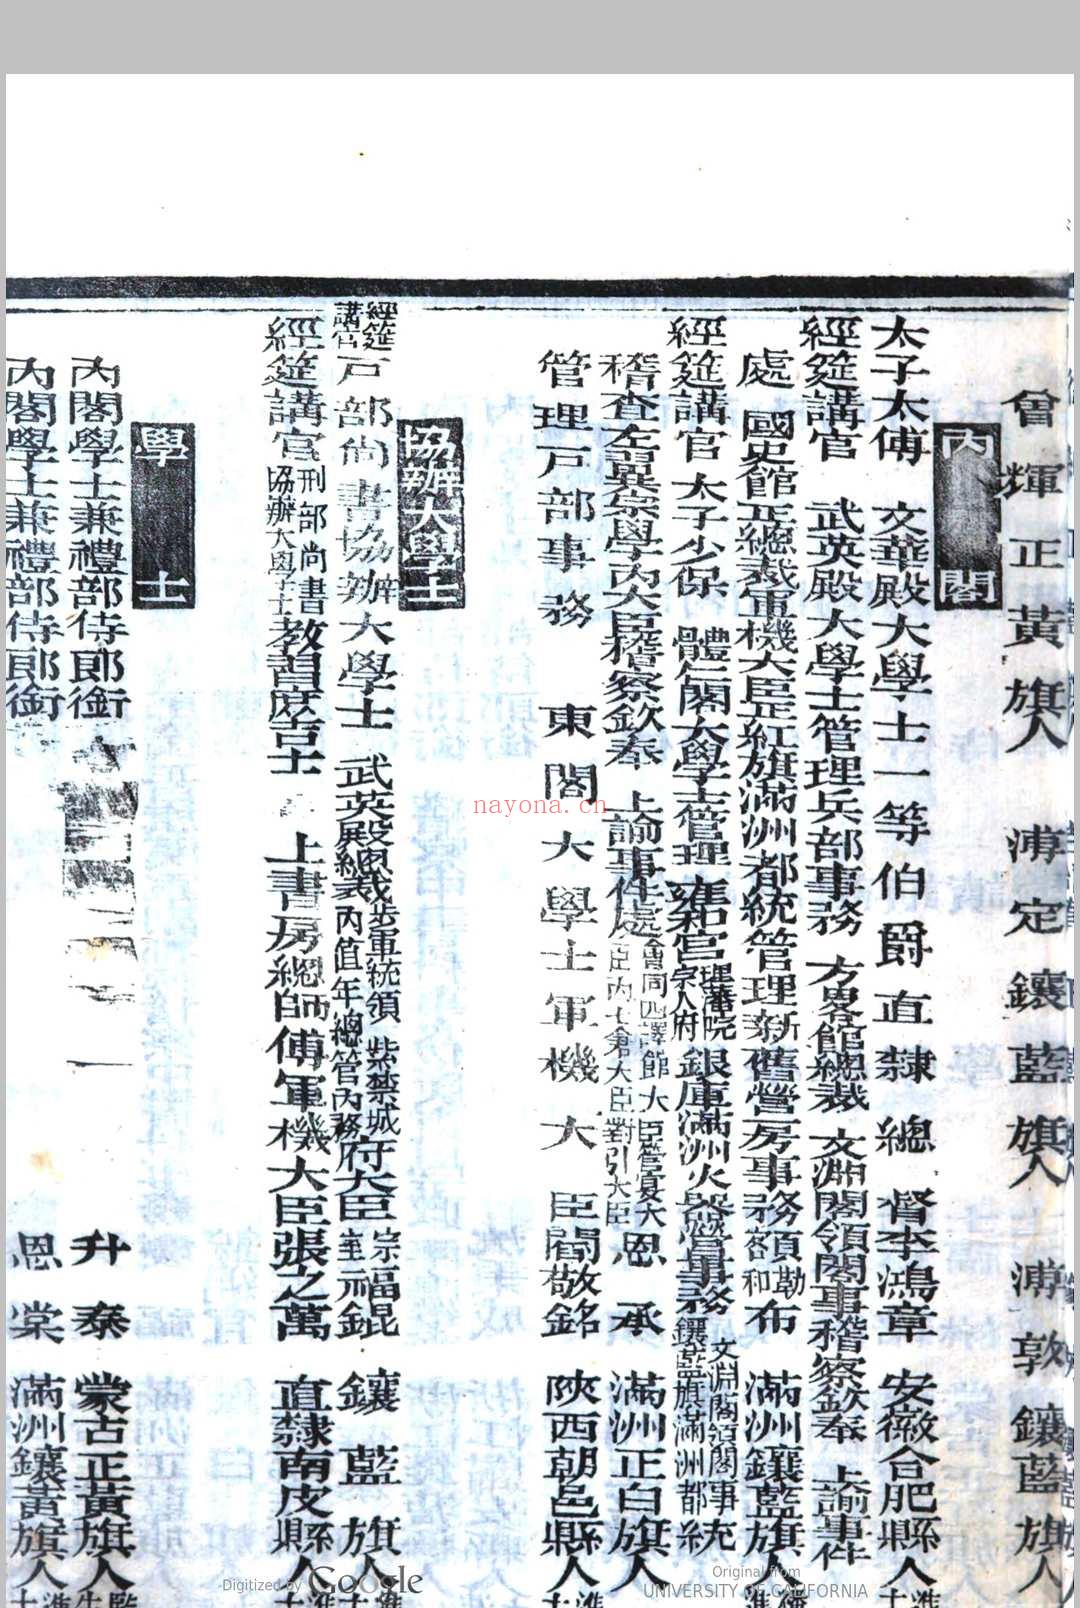 曾輝正黃旗人 溥定鑲藍旗人 溥敦鑲藍旗人
內閣
太子太傅 文華殿大學士一等伯爵直隸總督李鴻章 安徽合肥縣人
經筵講官 武英殿大學士管理兵部事務 方畧館總裁 文淵閣領閣事稽察欽奉 上諭事件
處 國史館正總裁軍機大臣正紅旗滿洲都統管理新舊營房事務額勒和布 滿洲鑲藍旗人
經筵講官 太子少保 體仁閣大學士管理雍和宮理藩院宗人府銀庫滿洲火器營事務鑲藍旗滿洲都統 文淵閣領閣事
稽查右翼宗學內大臣稽察欽奉 上諭事件處會同四譯館大臣管宴大臣內七倉大臣對引大臣恩承 滿洲正白旗人
管理戶部事務 東閣大學士軍機大臣閻敬銘 陝西朝邑縣人
協辦大學士
經筵講官戶部尚書協辦大學士 武英殿總裁步軍統領 紫禁城內值年總管內務府大臣宗室福錕 鑲藍旗人
經筵講官刑部尚書協辦大學士教習庶吉士 上書房總師傅軍機大臣張之萬 直隸南皮縣人
學士
內閣學士兼禮部侍郎銜 升泰 蒙古正黃旗人
內閣學士兼禮部侍郎銜 恩棠 滿洲鑲黃旗人
nayona.cn
Digitized by Google
Original from
UNIVERSITY OF CALIFORNIA